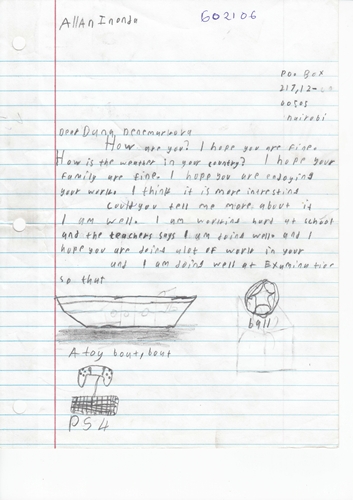 Allan Inonda
602106
P.o. Box
217,12-
00505
nairobi
Dear
How are you? I hope you are fine.
How is the weather in your country? I hope your
family are fine. I hope you are enjoying
your works. I think it is more interesting
Could you tell me more about it
I am well. I am working hard at school
and the teachers says I am doing well. and I
hope you are doing alot of work in your
and I am doing well at Examination
so that
ball
A toy bout, bout
PS4